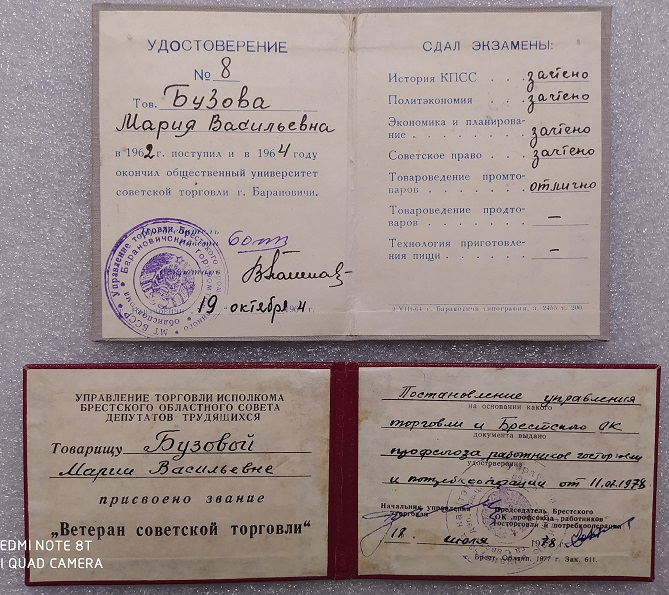 УДОСТОВЕРЕНИЕ
№ 8
Тов. Бузова
Мария Васильевна
в 1962 г. поступил и в 1964 году
окончил общественный университет
советской торговли г. Барановичи.
19 октября 4
СДАЛ ЭКЗАМЕНЫ:
История КПСС . . . зачтено
Политэкономия . . зачтено
Экономика и планирова-
ние . . . . . . . зачтено
Советское право . . зачтено
Товароведение промто-
варов . . . . . . отлично
Товароведение продто-
варов . . . . . . —
Технология приготовле-
ния пищи . . . . —
Барановичи типография, з. 2455 т. 200
УПРАВЛЕНИЕ ТОРГОВЛИ ИСПОЛКОМА
БРЕСТСКОГО ОБЛАСТНОГО СОВЕТА
ДЕПУТАТОВ ТРУДЯЩИХСЯ
Товарищу Бузовой
Марии Васильевне
присвоено звание
„Ветеран советской торговли“
Постановление управления
на основании какого
торговли и Брестского ОК
документа выдано
профсоюза работников госторговли
удостоверение
и потребкооперации от 11.02.1978
Начальник управления
торговли
Председатель Брестского
ОК профсоюза работников
госторговли и потребкооперации
18 июля 1978 г.
г. Брест. Облтип. 1977 г. Зак. 611.
REDMI NOTE 8T
AI QUAD CAMERA